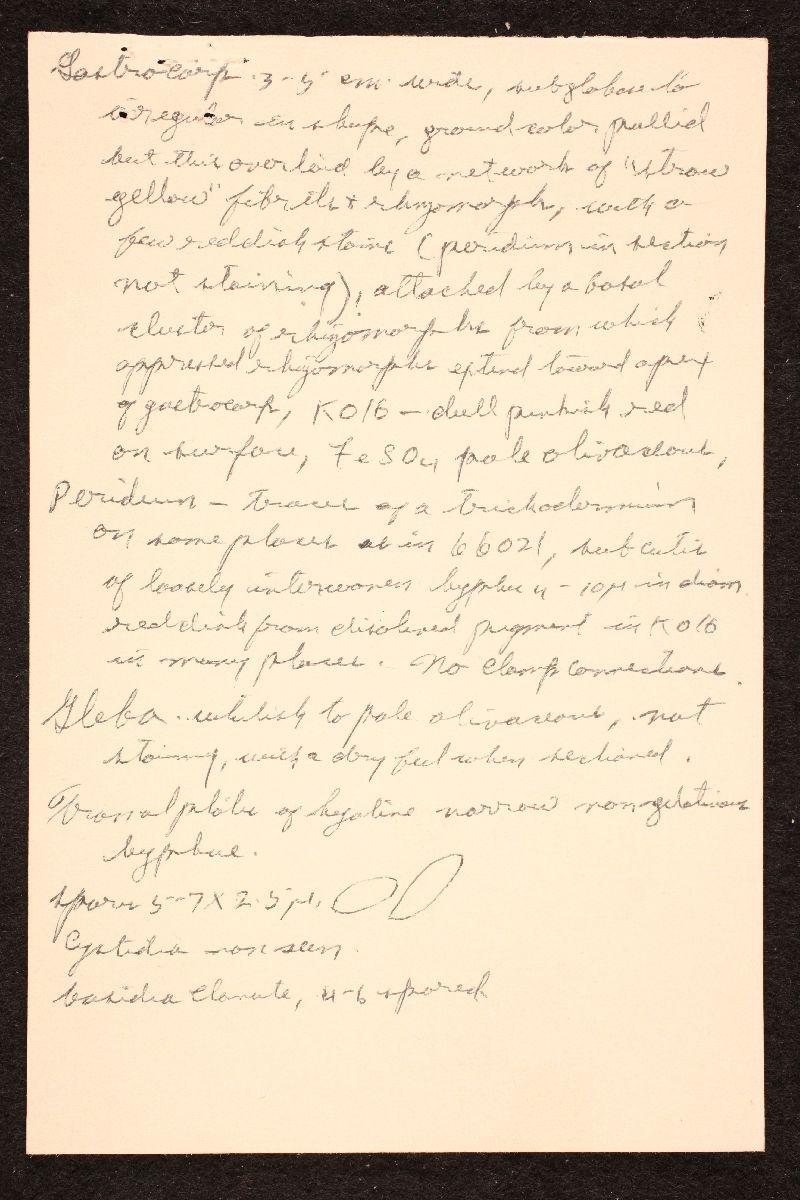 Gastrocarp 3-5 cm wide, subglobose to
irregular in shape, ground color pallid
but this overlaid by a network of "straw
yellow" fibrils + rhizomorphs, with a
few reddish stains (peridium in section
not staining), attached by a basal
cluster of rhizomorphs from which
appressed rhizomorphs extend toward apex
of gastrocarp, KOH - dull pinkish red
on surface, FeSO4 pale olivaceous,
Peridium - traces of a trichodermium
on some places as in 66021, subcutis
of loosely interwoven hyphae 4-10µ in diam
reddish from dissolved pigment in KOH
in many places. No clamp connections.
Gleba - whitish to pale olivaceous, not
staining, with a dry feel when sectioned.
Tramal plates of hyaline narrow nongelatinous
hyphae.
Spores 5-7 X 2.5µ.
Cystidia non seen.
basidia clavate, 4-6 spored